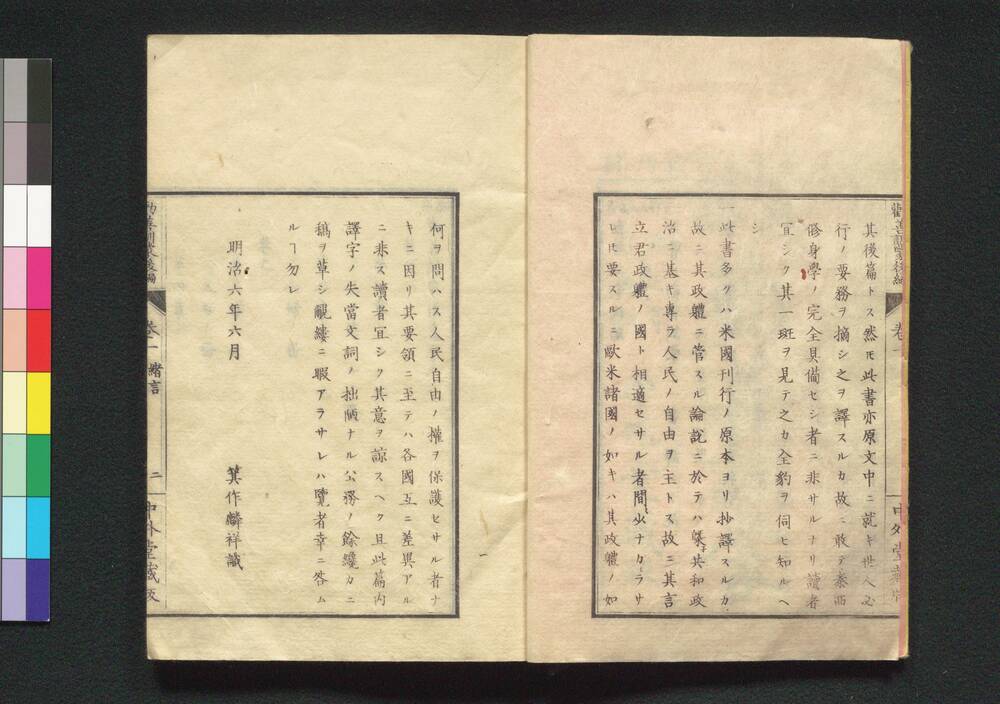 其後篇トス然𪜈此書亦原文中ニ就キ世人必
行ノ要務ヲ摘シ之ヲ譯スルカ故ニ敢テ泰西
修身學ノ完全具備セシ者ニ非サルナリ讀者
宜シク其一斑ヲ見テ之カ全豹ヲ伺ヒ知ルヘ
シ
一此書多クハ米國刊行ノ原本ヨリ抄譯スルカ
故ニ其政軆ニ管スル論說ニ於テハ槩子共和政
治ニ基キ專ラ人民ノ自由ヲ主トス故ニ其言
立君政軆ノ國ト相適セサル者間少ナカラサ
レ𪜈要スルニ歐米諸國ノ如キハ其政軆ノ如
何ヲ問ハス人民自由ノ權ヲ保護セサル者ナ
キニ因リ其要領ニ至テハ各國互ニ差異アル
ニ非ス讀者宜シク其意ヲ諒スヘク且此篇内
譯字ノ失當文詞ノ拙陋ナル公務ノ餘纔カニ
稿ヲ草シ覼縷ニ暇アラサレハ覽者幸ニ咎ム
ルヿ勿レ
明治六年六月
箕作麟祥識
勸善訓蒙後編
卷一
緒言
二
中外堂藏版